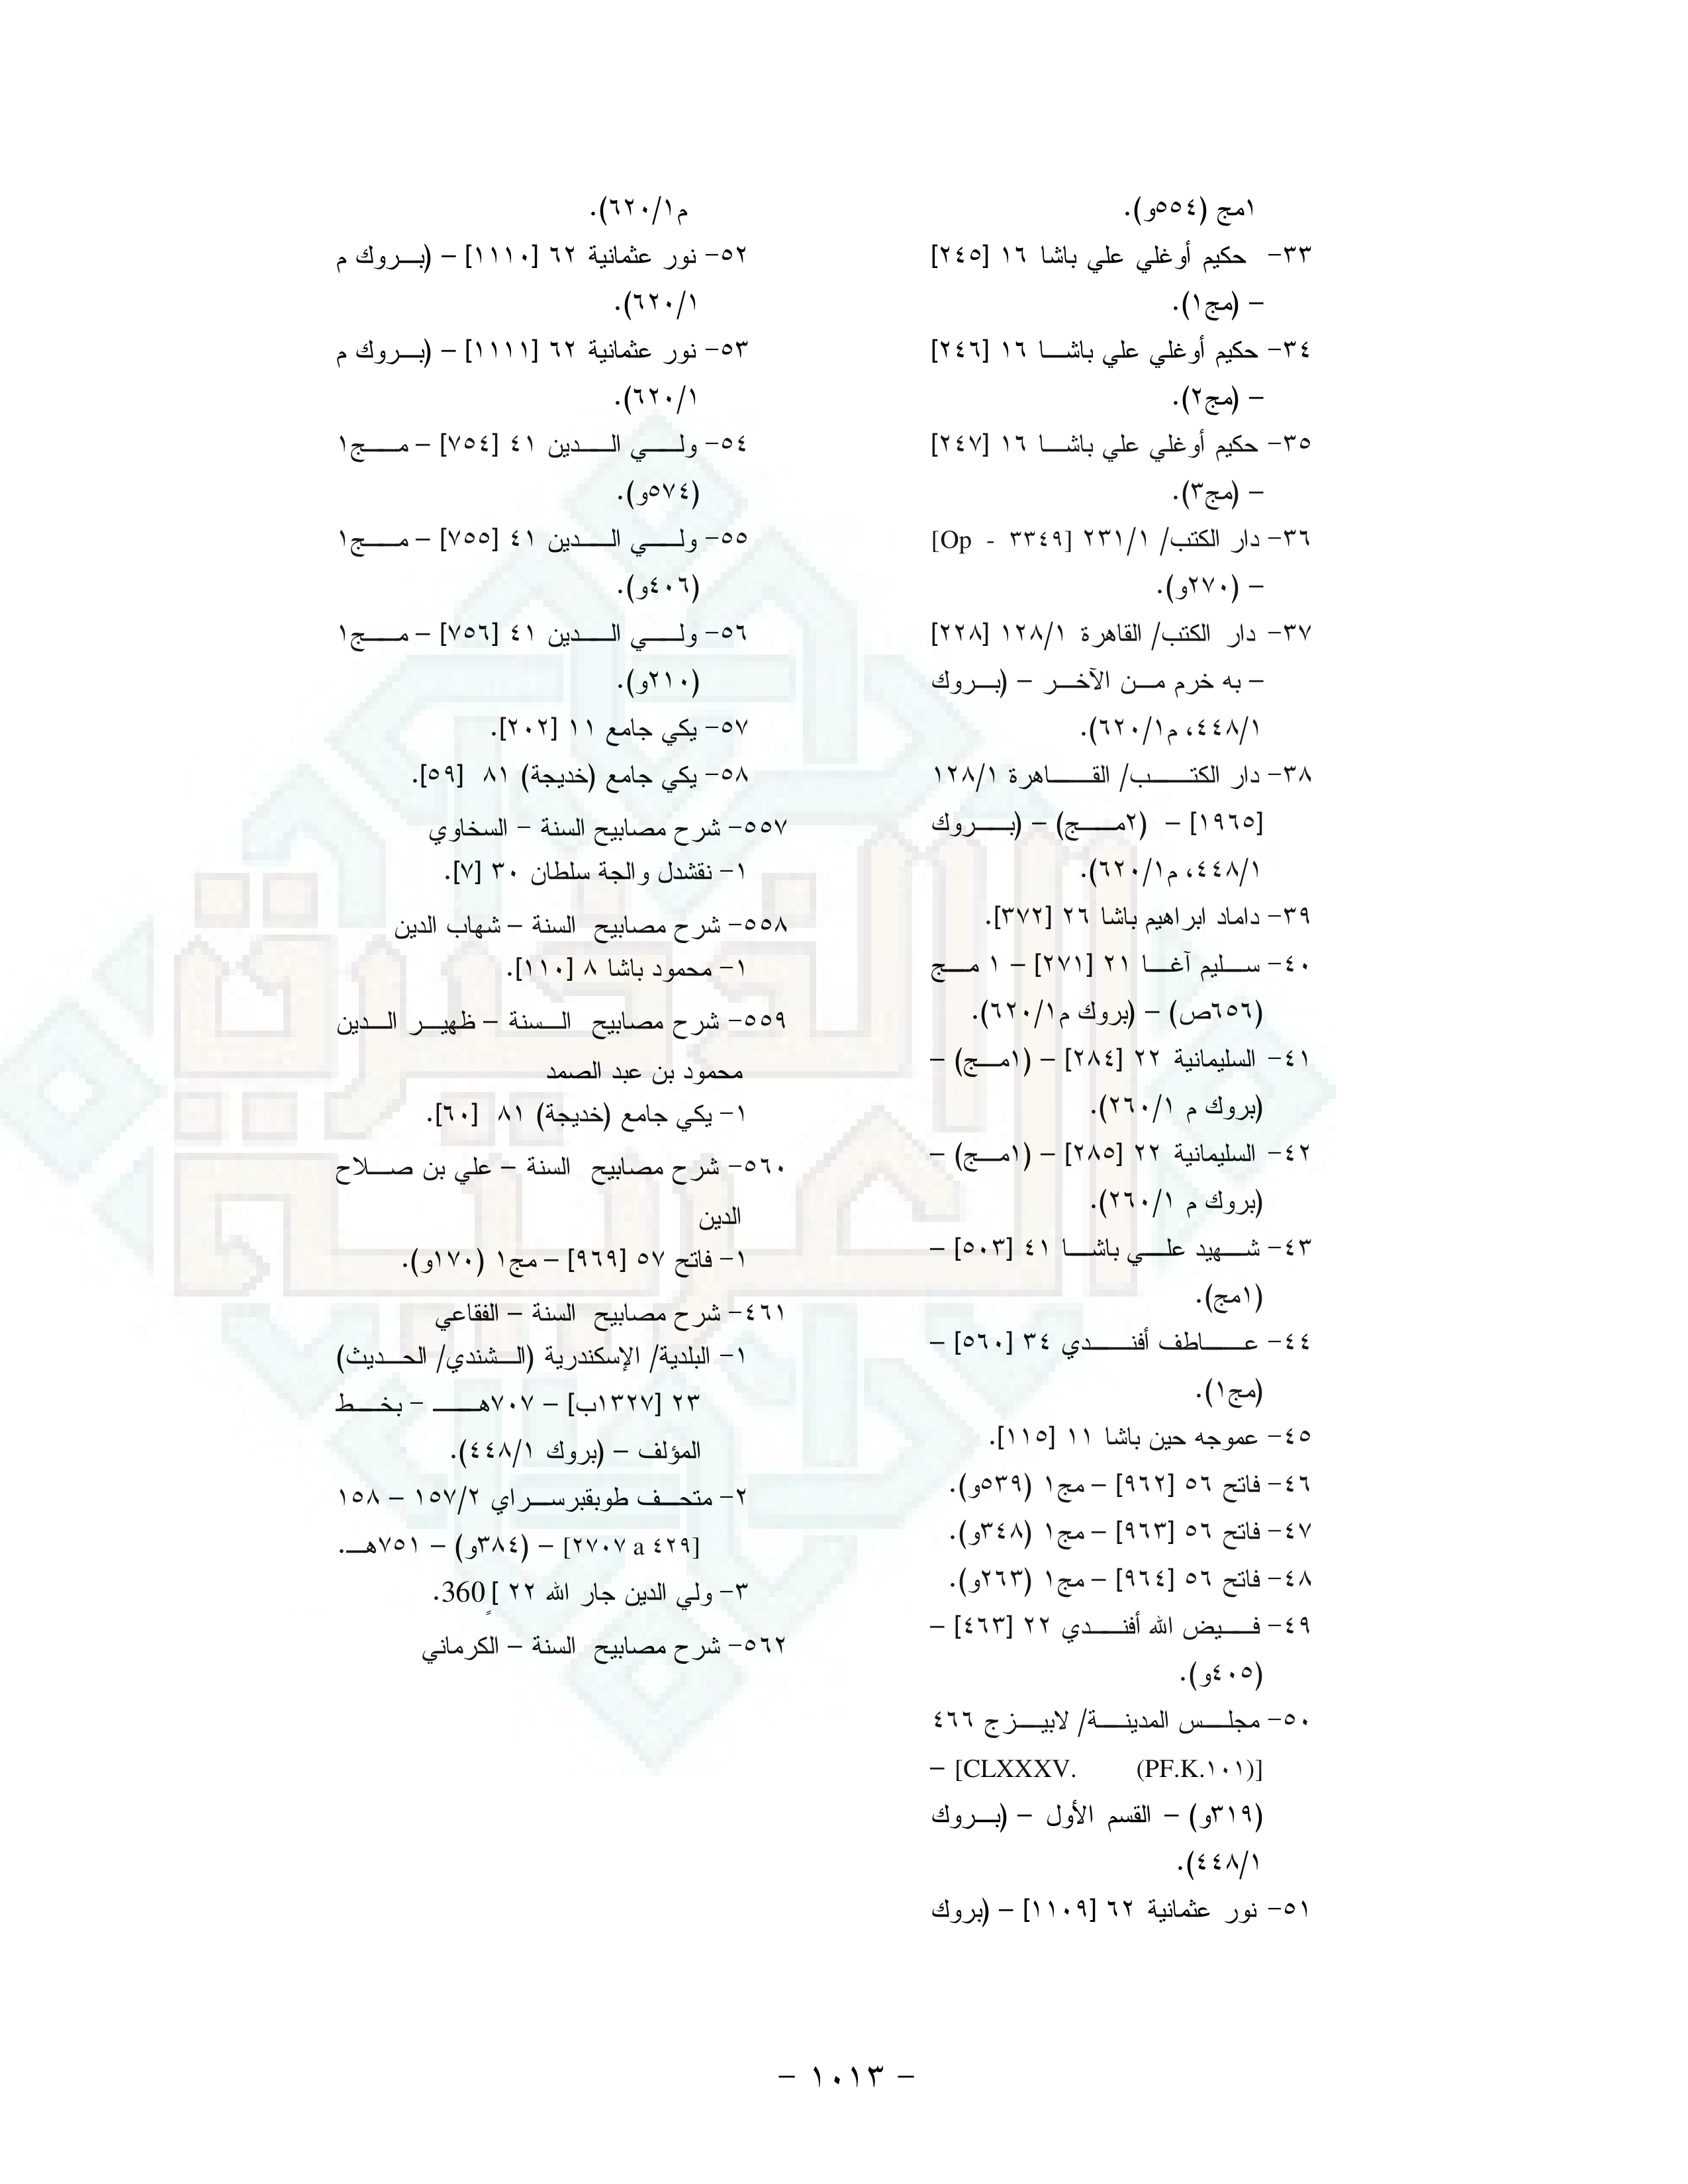 ١مج (٥٥٤و).
٣٣- حكيم أوغلي علي باشا ١٦ [٢٤٥]
– (مج١).
٣٤- حكيم أوغلي علي باشا ١٦ [٢٤٦]
– (مج٢).
٣٥- حكيم أوغلي علي باشا ١٦ [٢٤٧]
– (مج٣).
٣٦- دار الكتب/ ٢٣١/١ [٣٣٤٩ - Op]
– (٢٧٠و).
٣٧- دار الكتب/ القاهرة ١٢٨/١ [٢٢٨]
– به خرم من الآخر – (بروك
٤٤٨/١، م٦٢٠/١).
٣٨- دار الكتب/ القاهرة ١٢٨/١
[١٩٦٥] – (٢مج) – (بروك
٤٤٨/١، م٦٢٠/١).
٣٩- داماد ابراهيم باشا ٢٦ [٣٧٢].
٤٠- سليم آغا ٢١ [٢٧١] – ١ مج
(٦٥٦ص) – (بروك م٦٢٠/١).
٤١- السليمانية ٢٢ [٢٨٤] – (١مج) –
(بروك م ٢٦٠/١).
٤٢- السليمانية ٢٢ [٢٨٥] – (١مج) –
(بروك م ٢٦٠/١).
٤٣- شهيد علي باشا ٤١ [٥٠٣] –
(١مج).
٤٤- عاطف أفندي ٣٤ [٥٦٠] –
(مج١).
٤٥- عموجه حين باشا ١١ [١١٥].
٤٦- فاتح ٥٦ [٩٦٢] – مج١ (٥٣٩و).
٤٧- فاتح ٥٦ [٩٦٣] – مج١ (٣٤٨و).
٤٨- فاتح ٥٦ [٩٦٤] – مج١ (٢٦٣و).
٤٩- فيض الله أفندي ٢٢ [٤٦٣] –
(٤٠٥و).
٥٠- مجلس المدينة/ لابيزج ٤٦٦
[CLXXXV. (PF.K.١٠١)] –
(٣١٩و) – القسم الأول – (بروك
٤٤٨/١).
٥١- نور عثمانية ٦٢ [١١٠٩] – (بروك
م٦٢٠/١).
٥٢- نور عثمانية ٦٢ [١١١٠] – (بروك م
٦٢٠/١).
٥٣- نور عثمانية ٦٢ [١١١١] – (بروك م
٦٢٠/١).
٥٤- ولي الدين ٤١ [٧٥٤] – مج١
(٥٧٤و).
٥٥- ولي الدين ٤١ [٧٥٥] – مج١
(٤٠٦و).
٥٦- ولي الدين ٤١ [٧٥٦] – مج١
(٢١٠و).
٥٧- يكي جامع ١١ [٢٠٢].
٥٨- يكي جامع (خديجة) ٨١ [٥٩].
٥٥٧- شرح مصابيح السنة – السخاوي
١- نقشدل والجة سلطان ٣٠ [٧].
٥٥٨- شرح مصابيح السنة – شهاب الدين
١- محمود باشا ٨ [١١٠].
٥٥٩- شرح مصابيح السنة – ظهير الدين
محمود بن عبد الصمد
١- يكي جامع (خديجة) ٨١ [٦٠].
٥٦٠- شرح مصابيح السنة – علي بن صلاح
الدين
١- فاتح ٥٧ [٩٦٩] – مج١ (١٧٠و).
٤٦١- شرح مصابيح السنة – الفقاعي
١- البلدية/ الإسكندرية (الشندي/ الحديث)
٢٣ [١٣٢٧ب] – ٧٠٧هـ – بخط
المؤلف – (بروك ٤٤٨/١).
٢- متحف طوبقبرسراي ١٥٧/٢ – ١٥٨
[٤٢٩ a ٢٧٠٧] – (٣٨٤و) – ٧٥١هـ.
٣- ولي الدين جار الله ٢٢ [360.
٥٦٢- شرح مصابيح السنة – الكرماني
– ١٠١٣ –